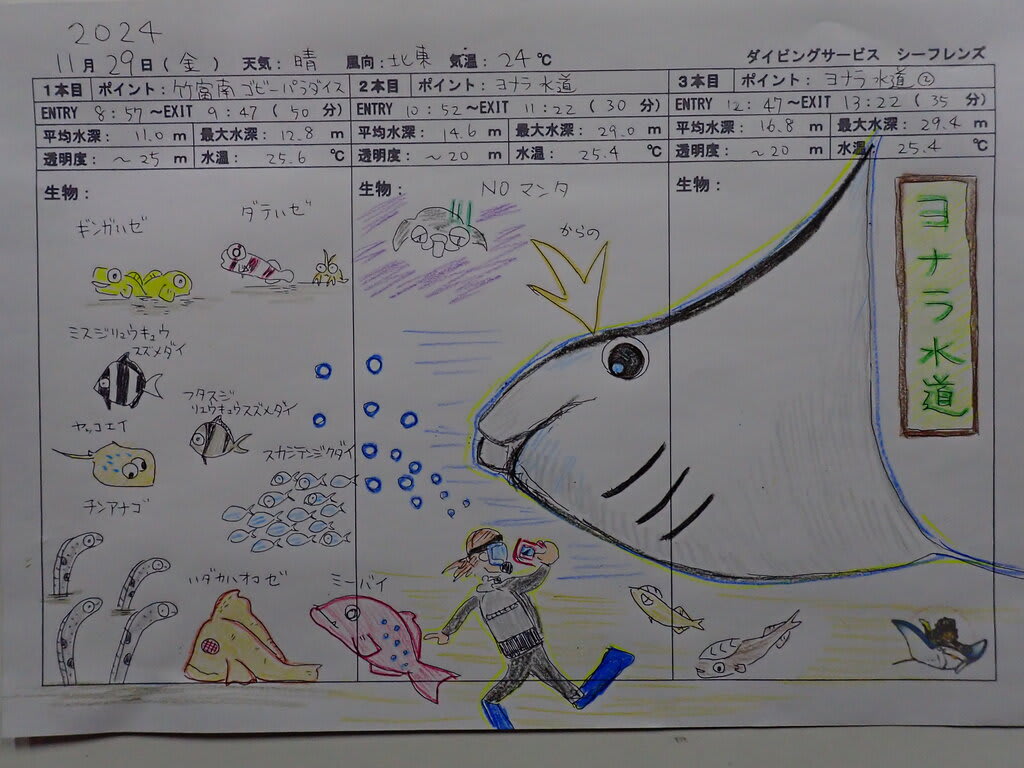 2024
11月29日(金) 天気:晴 風向:北東 気温:24℃ ダイビングサービス シーフレンズ
1本目 ポイント:竹富南ゴビーパラダイス
ENTRY 8:57~EXIT 9:47(50分)
平均水深:11.0m 最大水深:12.8m
透明度:~25m 水温:25.6℃
生物:
ギンガハゼ
ダテハゼ
ミスジリュウキュウ
スズメダイ
フタスジ
リュウキュウスズメダイ
ヤッコエイ
スカシテンジクダイ
チンアナゴ
ハダカハオコゼ
ミーバイ
2本目 ポイント:ヨナラ水道
ENTRY 10:52~EXIT 11:22(30分)
平均水深:14.6m 最大水深:29.0m
透明度:~20m 水温:25.4℃
生物:
NOマンタ
からの
3本目 ポイント:ヨナラ水道②
ENTRY 12:47~EXIT 13:22(35分)
平均水深:16.8m 最大水深:29.4m
透明度:~20m 水温:25.4℃
生物:
ヨナラ水道